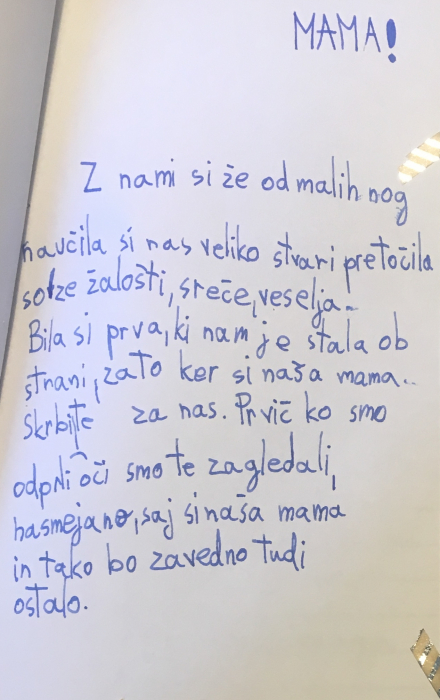 MAMA!
Z nami si že od malih nog
naučila si nas veliko stvari pretočila
solze žalosti, sreče, veselja..
Bila si prva, ki nam je stala ob
strani, zato ker si naša mama..
Skrbite za nas. Prvič ko smo
odprli oči smo te zagledali,
nasmejano, saj si naša mama
in tako bo zavedno tudi
ostalo.